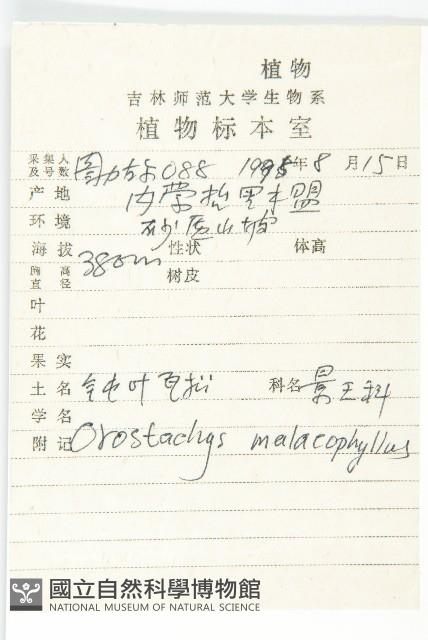 植物
吉林师范大学生物系
植物标本室
采集人及号数 088 1995年8月15日
产地 内蒙 盟
环境 砂质山坡
海拔 380m 性状 体高
胸高直径 树皮
叶
花
果实
土名 钝叶瓦松 科名 景天科
学名
附记 Orostachys malacophyllus
國立自然科學博物館
NATIONAL MUSEUM OF NATURAL SCIENCE